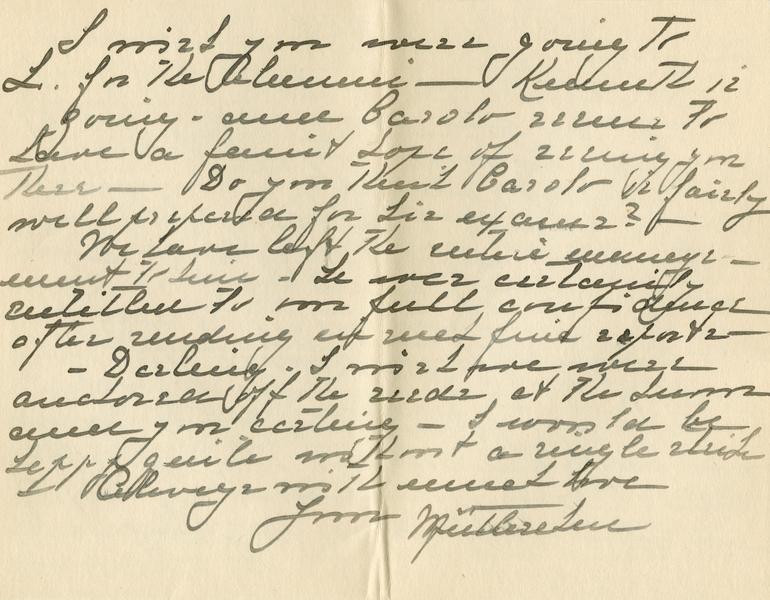 I wish you were going to
L. for the Alumni — Kenneth is
going - and Carolo seems to
have a faint hope of seeing you
there — Do you think Carolo is fairly
well prepared for his exams? —
We have left the entire manage-
ment to him - he was certainly
entitled to our full confidence
after sending us such fine reports —
- Darling. I wish we were
anchored off the at the
and you eating — I would be
happy quite without a single
Always with much love
Your Mütterchen